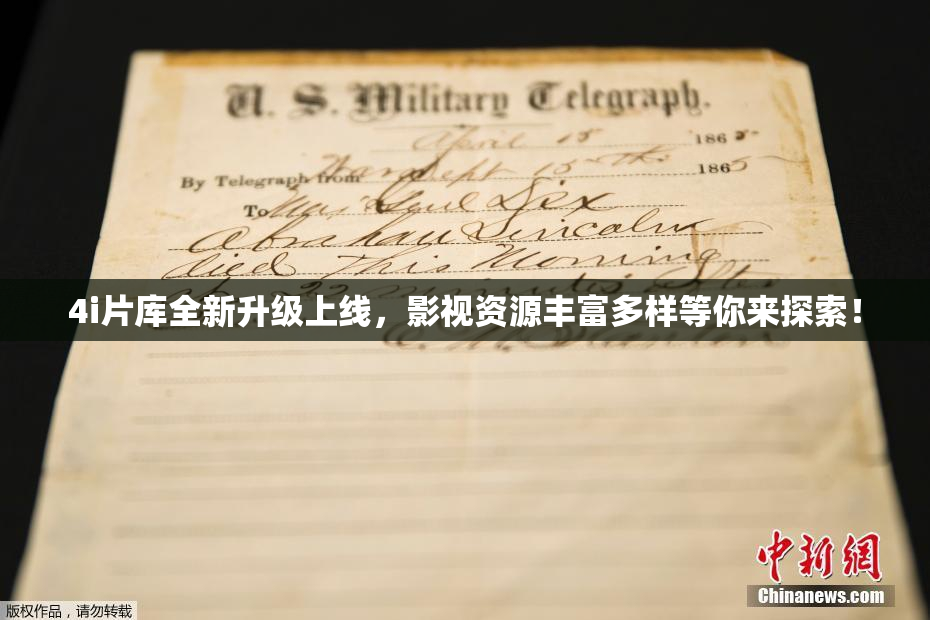 U. S. Military Telegraph.
April 15 1865
By Telegraph from War Dept 15th 1865
To Maj Genl Dix
Abraham Lincoln
died This Morning
at 22 minutes after
4i片库全新升级上线，影视资源丰富多样等你来探索！
E. M. Stanton
中新網
Chinanews.com
版权作品，请勿转载